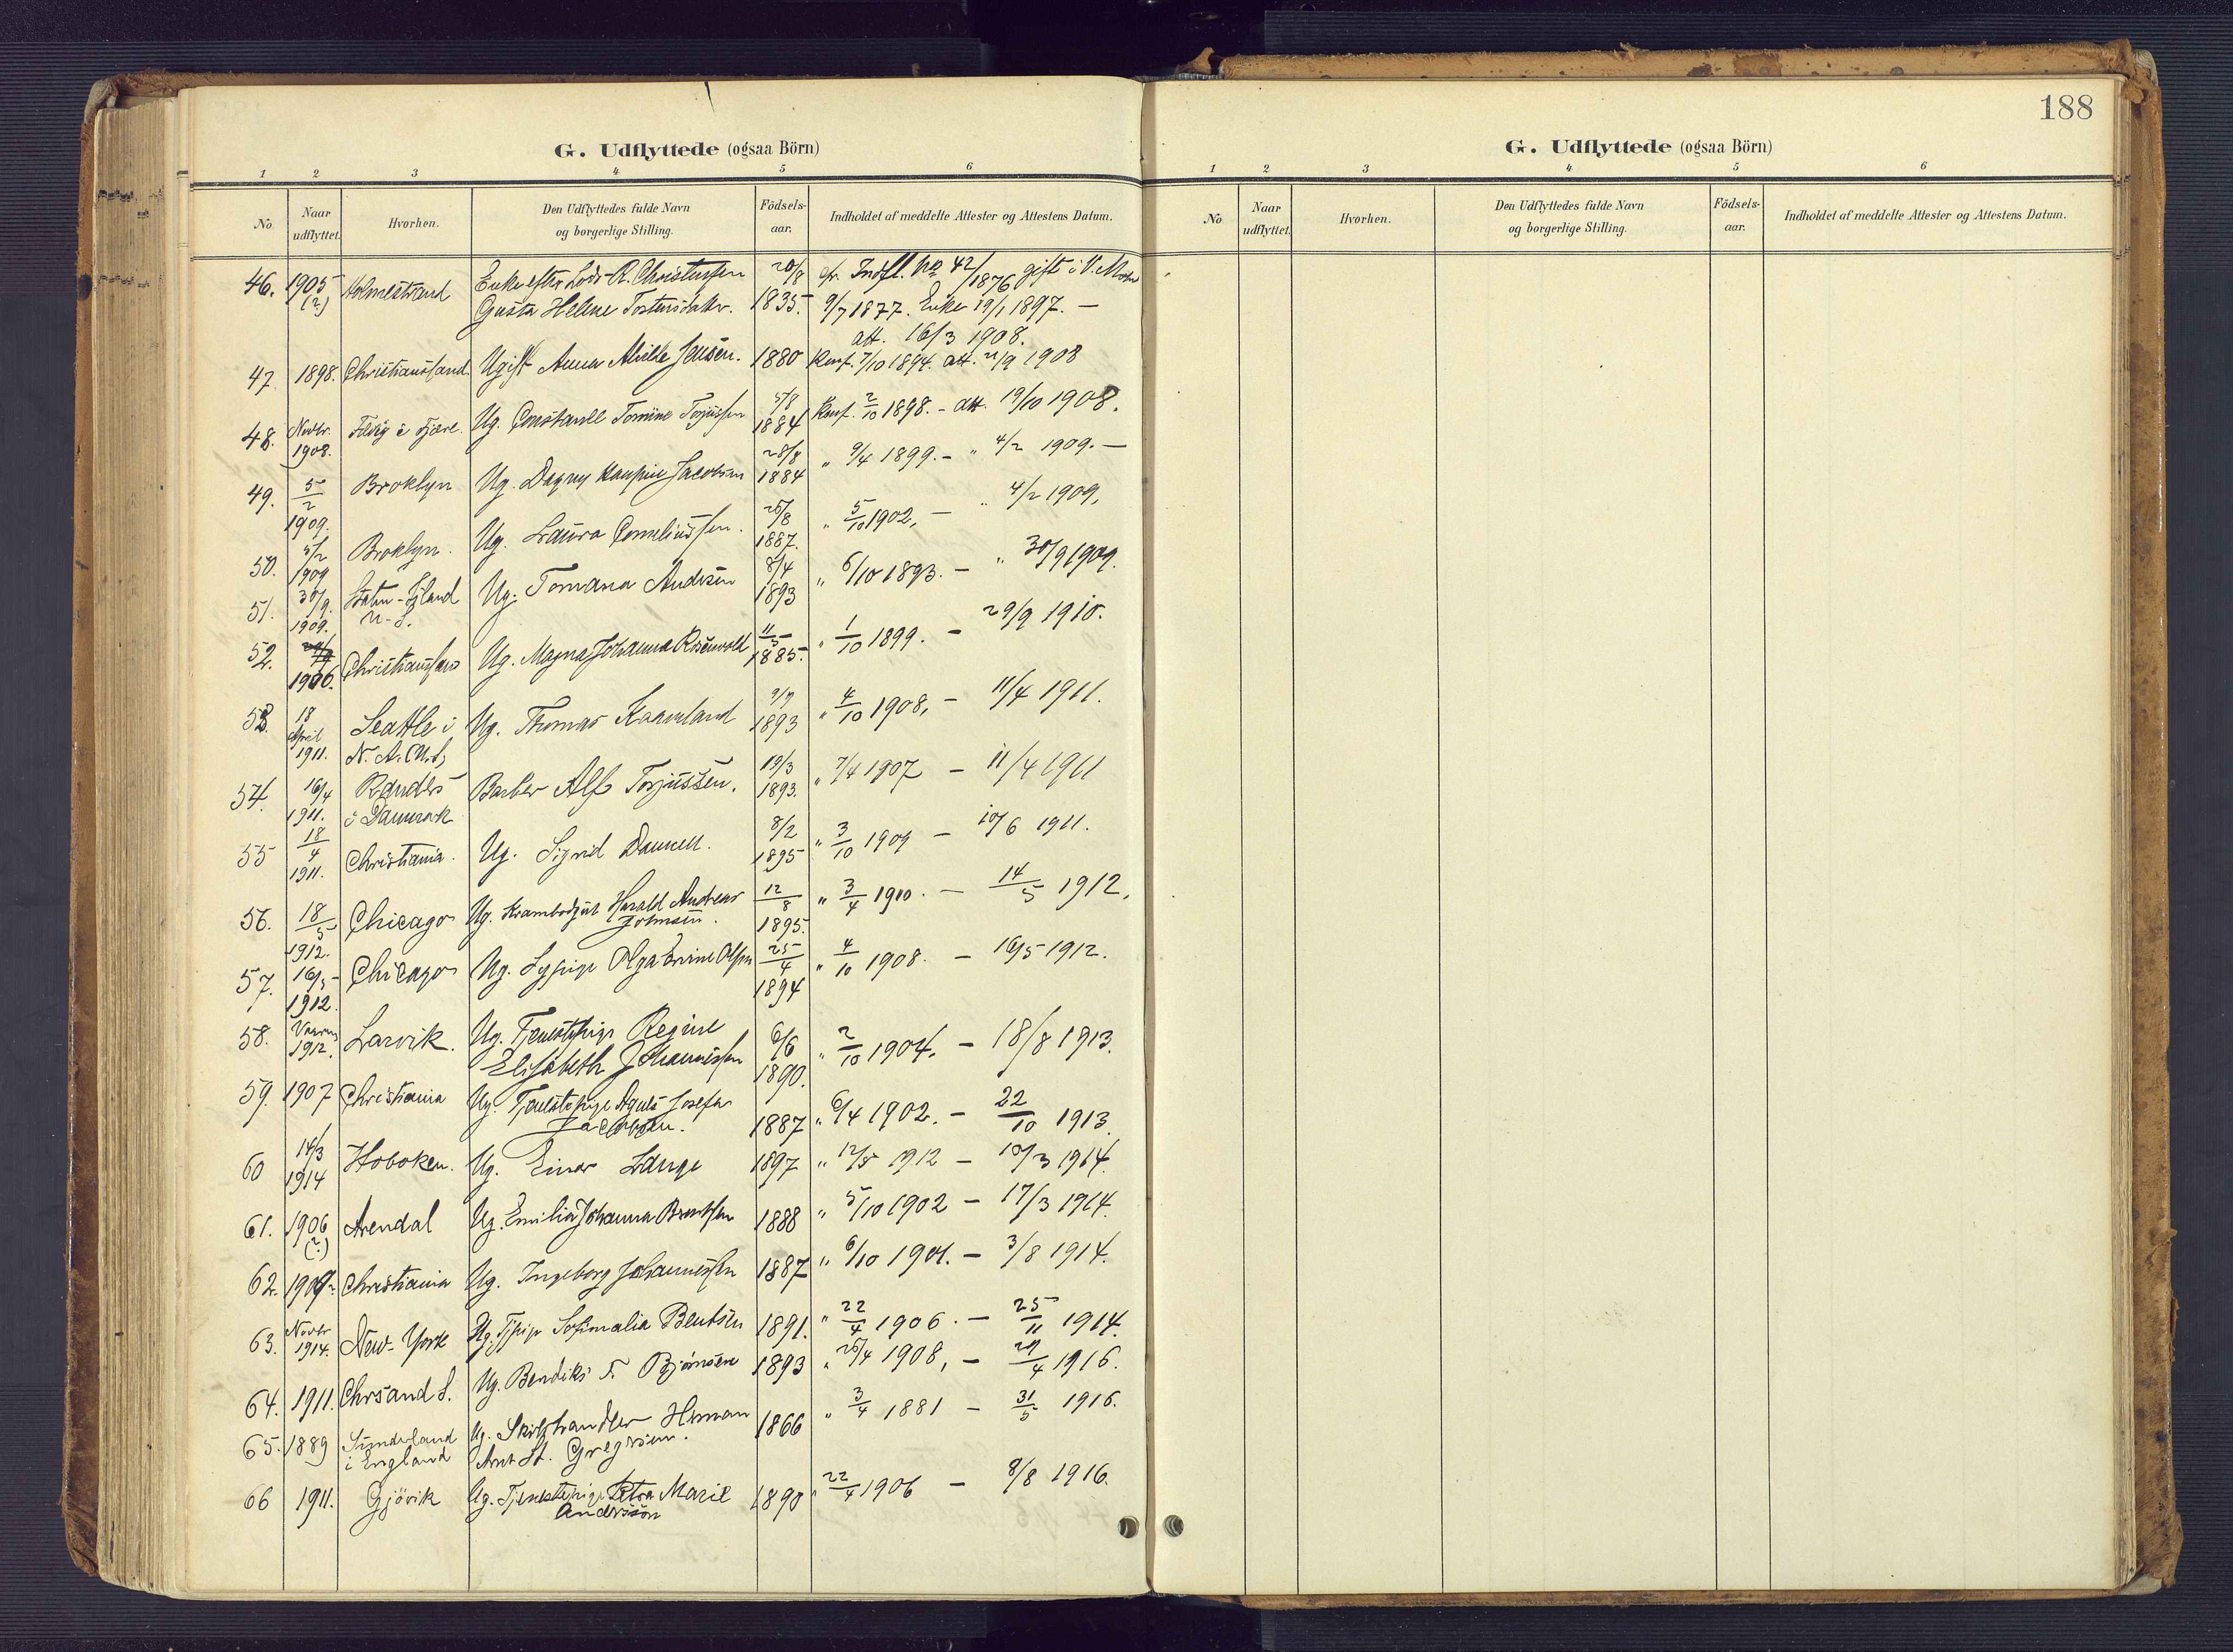 188
G. Udflyttede (ogsaa Börn)
1 2 3 4 5 6
No Naar udflyttet. Hvorhen. Den Udflyttedes fulde Navn og borgerlige Stilling. Födsels-aar. Indholdet af meddelte Attester og Attestens Datum.
46. 1905 (?) Holmestrand Enke efter Lods R. Christensen 20/8 cfr. Indfl. No 42/1876 gift i V. Moland
Gusta Helene Tostensdatter. 1835. 9/7 1877. Enke 19/1 1897. —
att. 16/3 1908.
47. 1898. Christianssand. Ugift Anna Jensen. 1880 Konf. 7/10 1894. att. 21/9 1908
48. Novbr. 1908. Fevig i Fjære. Ug. Constance Tomine Torjussen 5/8 1884 Konf. 2/10 1898. - att. 19/10 1908.
49. 5/2 1909. Broklyn Ug. Dagny Jacobsen 28/8 1884 " 9/4 1899. - " 4/2 1909. —
50. 5/2 1909 Broklyn. Ug. Laura Corneliussen. 25/8 1887. " 5/10 1902, — " 4/2 1909.
51. 30/9. 1909. Staten-Island N-J. Ug. Tomana Andersen 8/4 1893 " 6/10 1893. — " 30/9 1909.
52. 1906. Christianssand Ug. Magna Johanna Rosenvold 11/5 1885. " 1/10 1899. — 29/9 1910.
53. 18 April 1911. Seattle i N. A. Ug. Thomas Kaamland 9/7 1893 " 4/10 1908, — 11/4 1911.
54. 16/4 1911. Randers i Danmark Barber Alf Torjussen. 19/3 1893. " 7/4 1907 — 11/4 1911
55 18/4 1911. Christiania. Ug. Sigrid Dannell. 8/2 1895 " 3/10 1909 — 10/6 1911.
56. 18/5 1912. Chicago Ug. Krambodgut Harald Andreas Johnsen. 12/8 1895. " 3/4 1910. — 14/5 1912.
57. 16/5 1912. Chicago Ug. Sypige Olga Olsen 25/4 1894 " 4/10 1908. — 16/5 1912.
58. Vaaren 1912. Larvik. Ug. Tjenestepige Regine
Elisabeth Johannessen 6/6 1890. " 2/10 1904. — 18/8 1913.
59. 1907 Christiania Ug. Tjenestepige Agnes Josefa
Jacobsen. 1887 " 6/4 1902. — 22/10 1913.
60 14/3 1914 Hoboken. Ug. Einar Lange 1897 " 12/5 1912 — 10/3 1914.
61. 1906 (?) Arendal Ug. Emilia Johanna Berntsen 1888 " 5/10 1902 — 17/3 1914.
62. 1909. Christiania Ug. Ingeborg Johannessen 1887 " 6/10 1901. — 3/8 1914.
63. Novbr 1914. New-York Ug. Tjpige Bentsen 1891. " 22/4 1906. — 25/11 1914.
64. 1911. Chrsand S. Ug. Bendiks T. Bjønsen 1893 " 26/4 1908, — 29/4 1916.
65. 1889 Sunderland i England Ug. Skibshandler Herman
Arnt St. Gregersen. 1866 " 3/4 1881 — 31/5 1916.
66 1911. Gjövik Ug. Tjenestepige Petra Marie
Anderssøn 1890 " 22/4 1906 — 8/8 1916.
G. Udflyttede (ogsaa Börn)
1 2 3 4 5 6
No Naar udflyttet. Hvorhen. Den Udflyttedes fulde Navn og borgerlige Stilling. Födsels-aar. Indholdet af meddelte Attester og Attestens Datum.